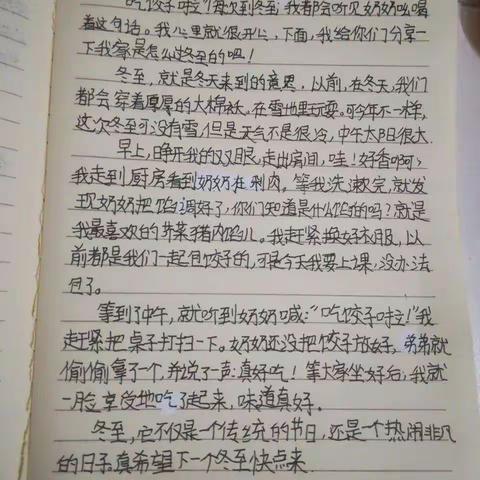 "吃饺子啦!"每次到冬至,我都会听见奶奶吆喝
着这句话。我心里就很开心,下面,我给你们分享一
下我家是怎么过冬至的吧!
冬至,就是冬天来到的意思,以前,在冬天,我们
都会穿着厚厚的大棉袄。在雪地里玩耍。可今年不一样,
这次冬至可没有雪,但是天气不是很冷,中午太阳很大.
早上,睁开我的双眼,走出房间,哇!好香啊,
我走到厨房看到奶奶在剁肉。等我洗漱完,就发
现奶奶把馅调好了,你们知道是什么馅的吗?就是
我最喜欢的韭菜猪肉馅儿。我赶紧换好衣服,以
前都是我们一起包饺子的,可是今天我要上课,没办法
包了。
等到了中午,就听到奶奶喊:"吃饺子啦!"我
赶紧把桌子打扫一下。奶奶还没把饺子放好,弟弟就
偷偷拿了一个,并说了一声:真好吃!等大家坐好后,我就
一脸享受地吃了起来,味道真好。
冬至,它不仅是一个传统的节日,还是一个热闹非凡
的日子.真希望下一个冬至快点来.